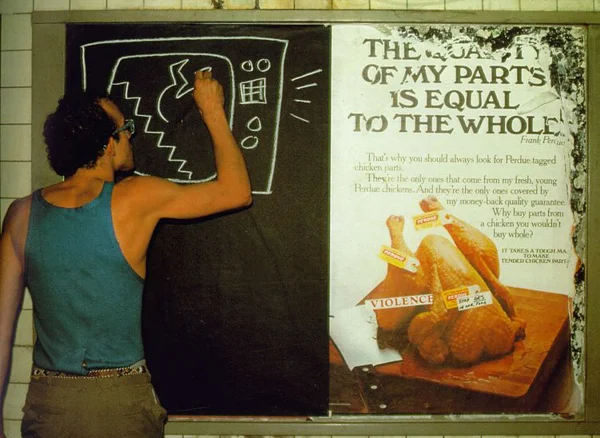 THE QUALITY
OF MY PARTS
IS EQUAL
TO THE WHOLE.
Frank Perdue
That's why you should always look for Perdue tagged
chicken parts.
They're the only ones that come from my fresh, young
Perdue chickens. And they're the only ones covered by
my money-back quality guarantee.
Why buy parts from
a chicken you wouldn't
buy whole?
IT TAKES A TOUGH MA
TO MAKE
TENDER CHICKEN PART
PERDUE
PERDUE
VIOLENCE
PERDUE